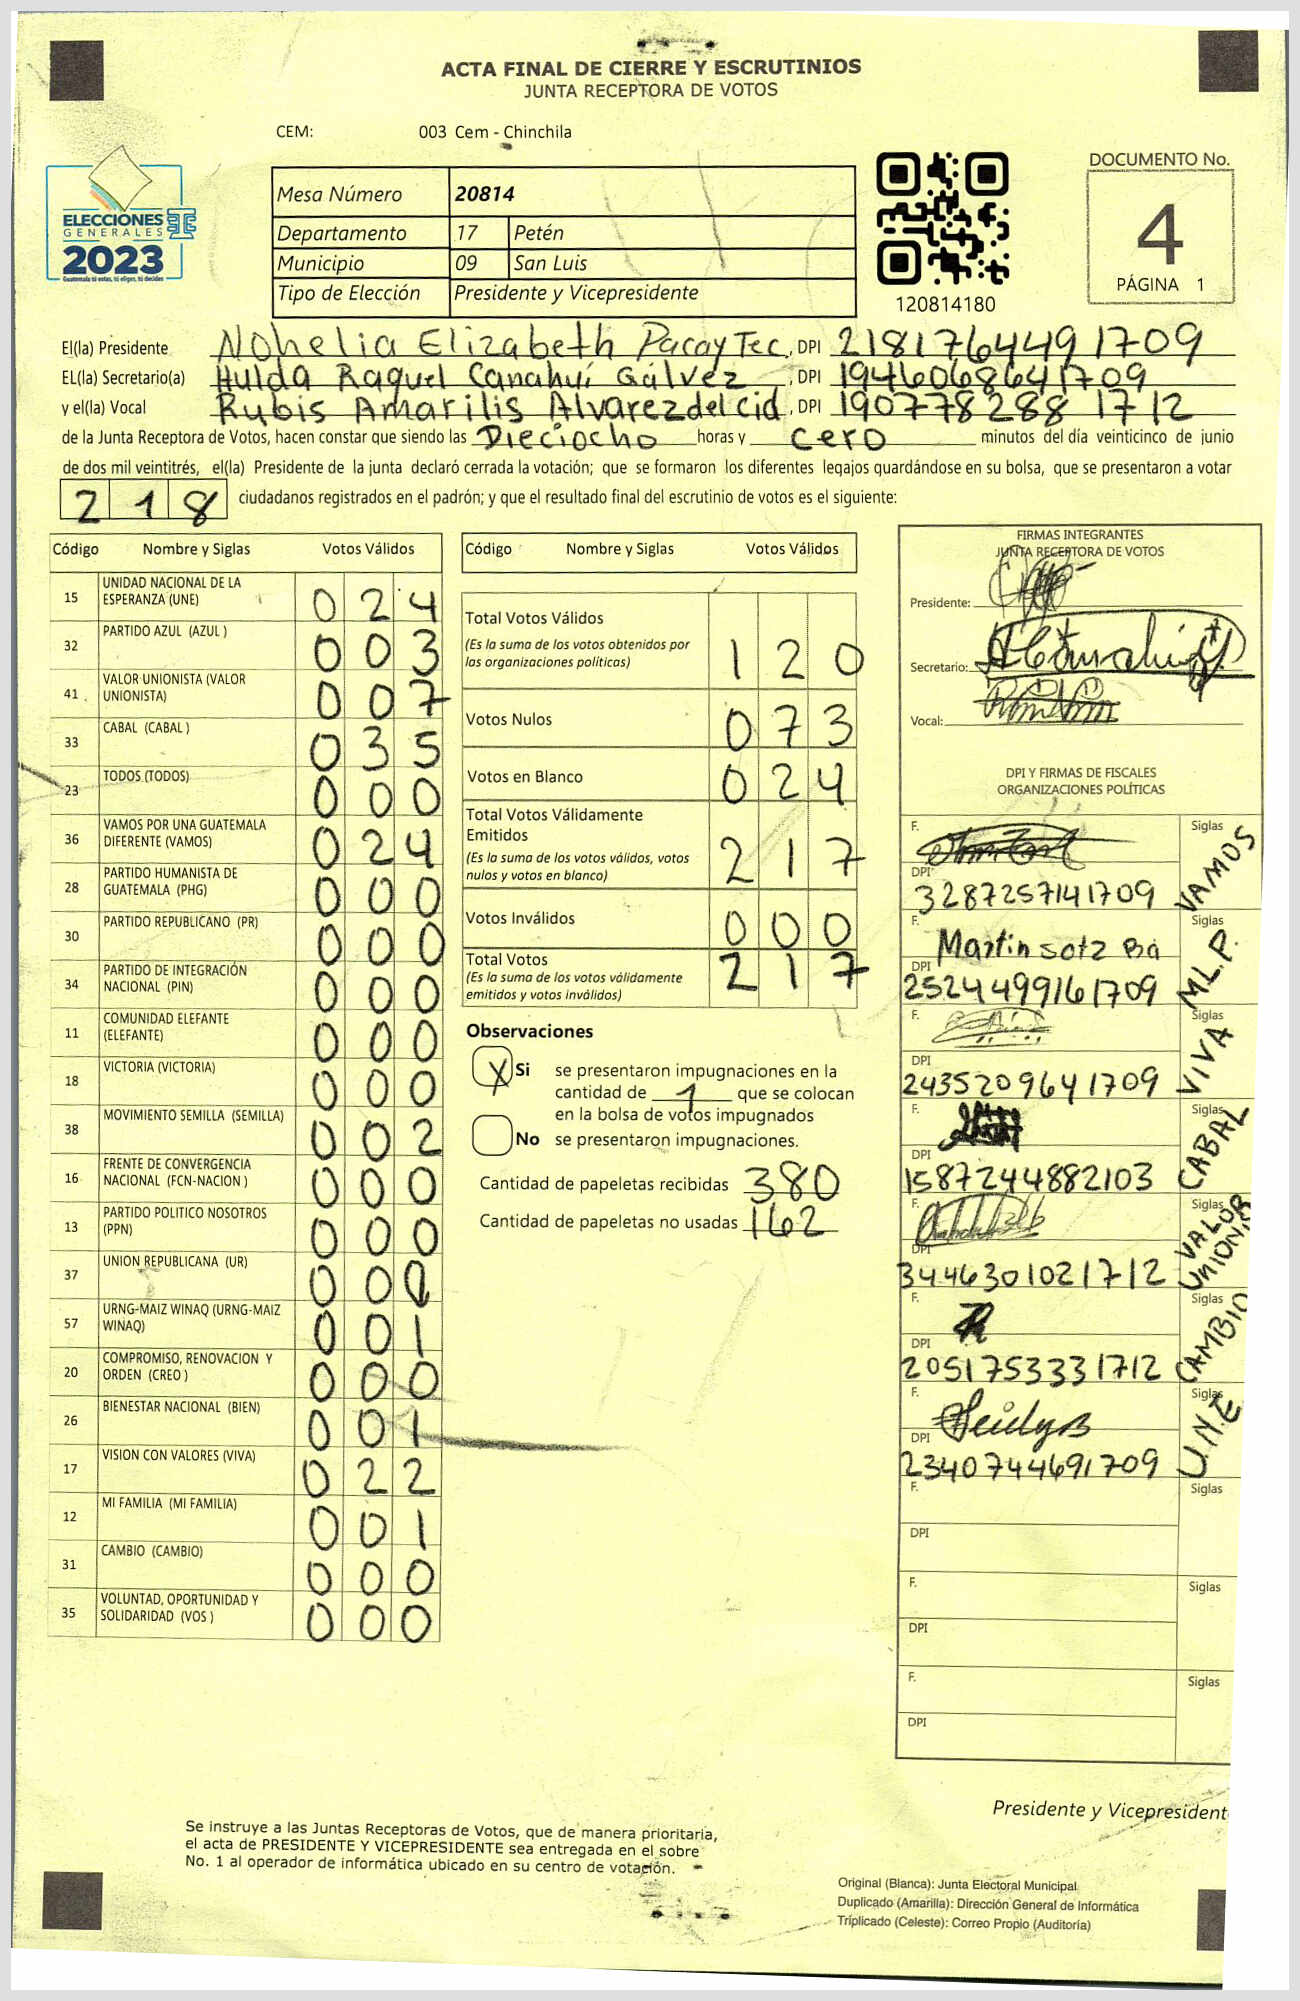 ACTA FINAL DE CIERRE Y ESCRUTINIOS
JUNTA RECEPTORA DE VOTOS
CEM: 003 Cem - Chinchila
ELECCIONES
GENERALES
2023
Guatemala tú votas, tú eliges, tú decides
Mesa Número 20814
Departamento 17 Petén
Municipio 09 San Luis
Tipo de Elección Presidente y Vicepresidente
120814180
DOCUMENTO No.
4
PÁGINA 1
El(la) Presidente Nohelia Elizabeth Pacay Tec, DPI 2181764491709
EL(la) Secretario(a) Hulda Raquel Canahuí Gálvez, DPI 1946068641709
y el(la) Vocal Rubis Amarilis Alvarez del Cid, DPI 1907782881712
de la Junta Receptora de Votos, hacen constar que siendo las Dieciocho horas y cero minutos del día veinticinco de junio
de dos mil veintitrés, el(la) Presidente de la junta declaró cerrada la votación; que se formaron los diferentes legajos quardándose en su bolsa, que se presentaron a votar
218 ciudadanos registrados en el padrón; y que el resultado final del escrutinio de votos es el siguiente:
Código Nombre y Siglas Votos Válidos
15 UNIDAD NACIONAL DE LA ESPERANZA (UNE) 024
32 PARTIDO AZUL (AZUL ) 003
41 VALOR UNIONISTA (VALOR UNIONISTA) 007
33 CABAL (CABAL ) 035
23 TODOS (TODOS) 000
36 VAMOS POR UNA GUATEMALA DIFERENTE (VAMOS) 024
28 PARTIDO HUMANISTA DE GUATEMALA (PHG) 000
30 PARTIDO REPUBLICANO (PR) 000
34 PARTIDO DE INTEGRACIÓN NACIONAL (PIN) 000
11 COMUNIDAD ELEFANTE (ELEFANTE) 000
18 VICTORIA (VICTORIA) 000
38 MOVIMIENTO SEMILLA (SEMILLA) 002
16 FRENTE DE CONVERGENCIA NACIONAL (FCN-NACION ) 000
13 PARTIDO POLITICO NOSOTROS (PPN) 000
37 UNION REPUBLICANA (UR) 00
57 URNG-MAIZ WINAQ (URNG-MAIZ WINAQ) 001
20 COMPROMISO, RENOVACION Y ORDEN (CREO ) 000
26 BIENESTAR NACIONAL (BIEN) 001
17 VISION CON VALORES (VIVA) 022
12 MI FAMILIA (MI FAMILIA) 001
31 CAMBIO (CAMBIO) 000
35 VOLUNTAD, OPORTUNIDAD Y SOLIDARIDAD (VOS ) 000
Código Nombre y Siglas Votos Válidos
Total Votos Válidos 120
(Es la suma de los votos obtenidos por
las organizaciones políticas)
Votos Nulos 073
Votos en Blanco 024
Total Votos Válidamente
Emitidos 217
(Es la suma de los votos válidos, votos
nulos y votos en blanco)
Votos Inválidos 000
Total Votos 217
(Es la suma de los votos válidamente
emitidos y votos inválidos)
Observaciones
X Si se presentaron impugnaciones en la
cantidad de 1 que se colocan
en la bolsa de votos impugnados
No se presentaron impugnaciones.
Cantidad de papeletas recibidas 380
Cantidad de papeletas no usadas 162
FIRMAS INTEGRANTES
JUNTA RECEPTORA DE VOTOS
Presidente:
Secretario:
Vocal:
DPI Y FIRMAS DE FISCALES
ORGANIZACIONES POLÍTICAS
F. Siglas VAMOS
DPI 3287257141709
F. Martin sotz Ba Siglas M.L.P.
DPI 2524499161709
F. Siglas VIVA
DPI 2435209641709
F. Siglas CABAL
DPI 1587244882103
F. Siglas VALOR UNION.
DPI 3446301021712
F. Siglas CAMBIO
DPI 2051753331712
F. Siglas U.N.E
DPI 2340744691709
F. Siglas
DPI
F. Siglas
DPI
F. Siglas
DPI
Presidente y Vicepresident
Se instruye a las Juntas Receptoras de Votos, que de manera prioritaria,
el acta de PRESIDENTE Y VICEPRESIDENTE sea entregada en el sobre
No. 1 al operador de informática ubicado en su centro de votación.
Original (Blanca): Junta Electoral Municipal
Duplicado (Amarilla): Dirección General de Informática
Triplicado (Celeste): Correo Propio (Auditoría)